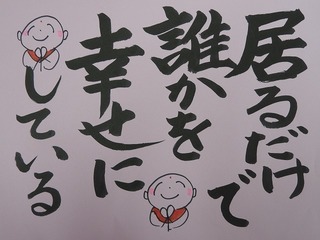 居るだけで
誰かを
幸せに
している